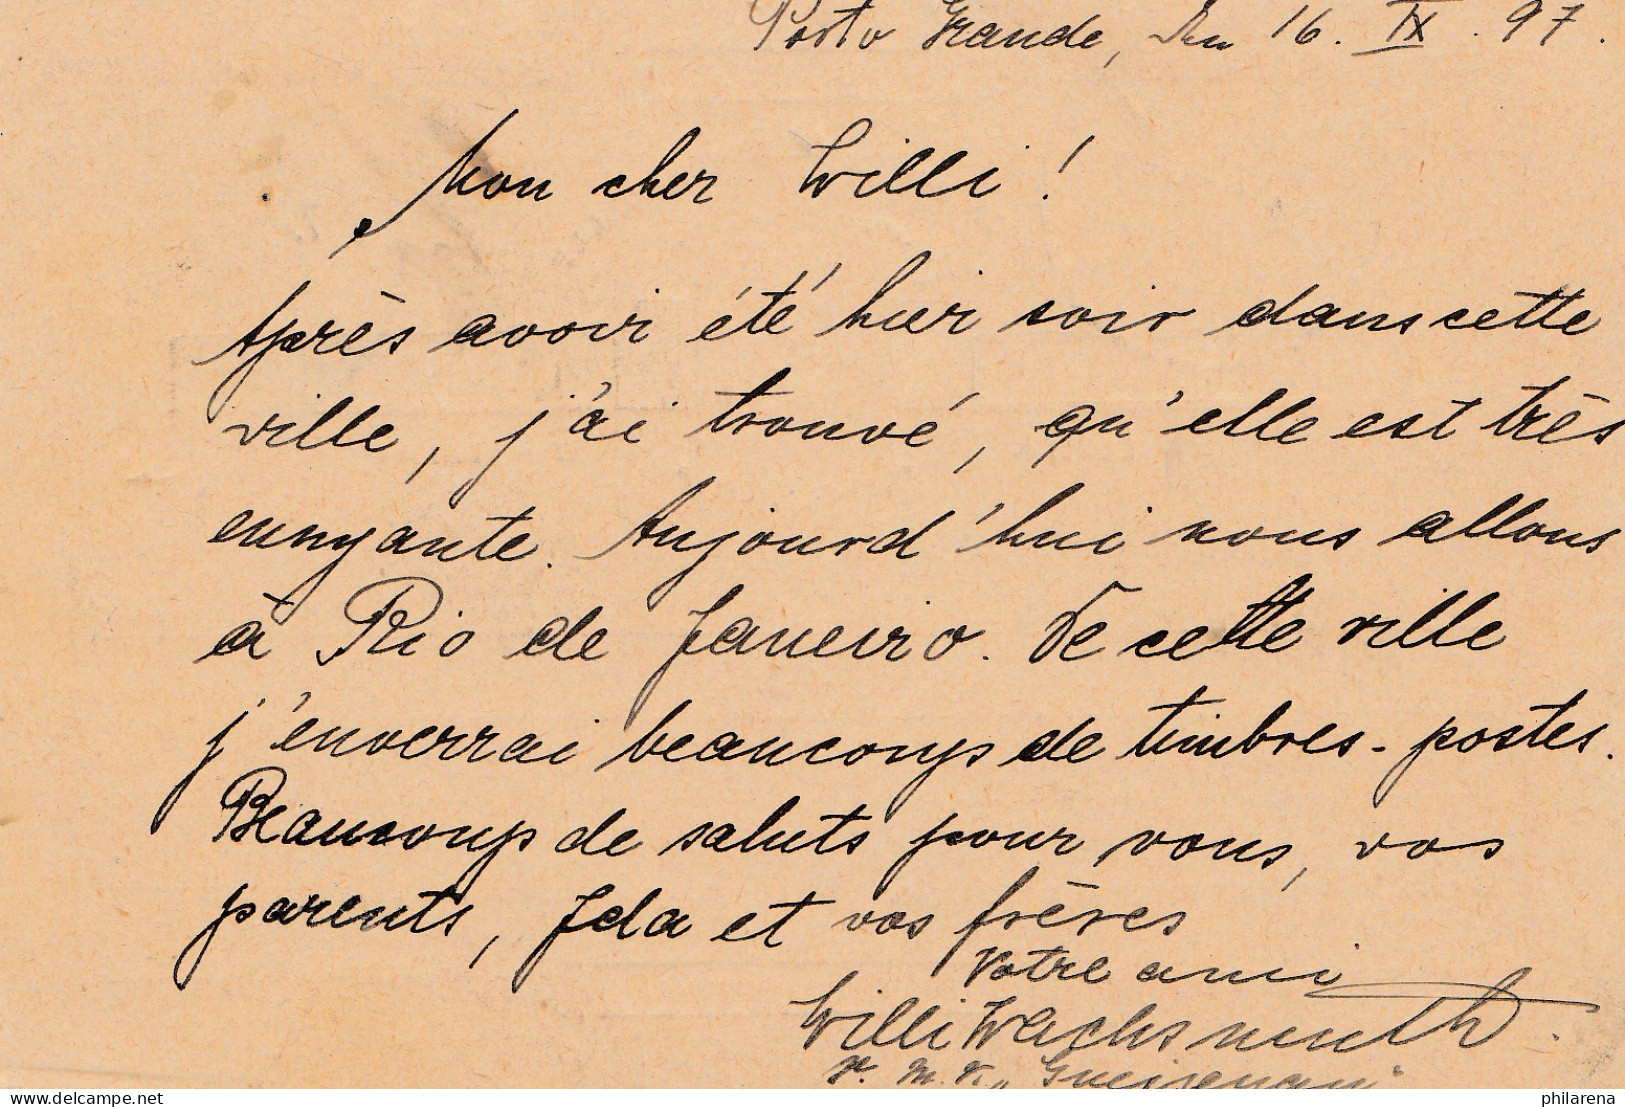 Porto Grande, den 16. IX. 97.
Mon cher Willi!
Après avoir été hier soir dans cette
ville, j'ai trouvé, qu'elle est très
ennyante. Aujourd'hui nous allons
à Rio de Janeiro. De cette ville
j'enverrai beaucoup de timbres-postes.
Beaucoup de saluts pour vous, vos
parents, Ida et vos frères
Votre ami
Willi Wachsmuth.
S. M. S. „Gneisenau"
delcampe.net
philarena